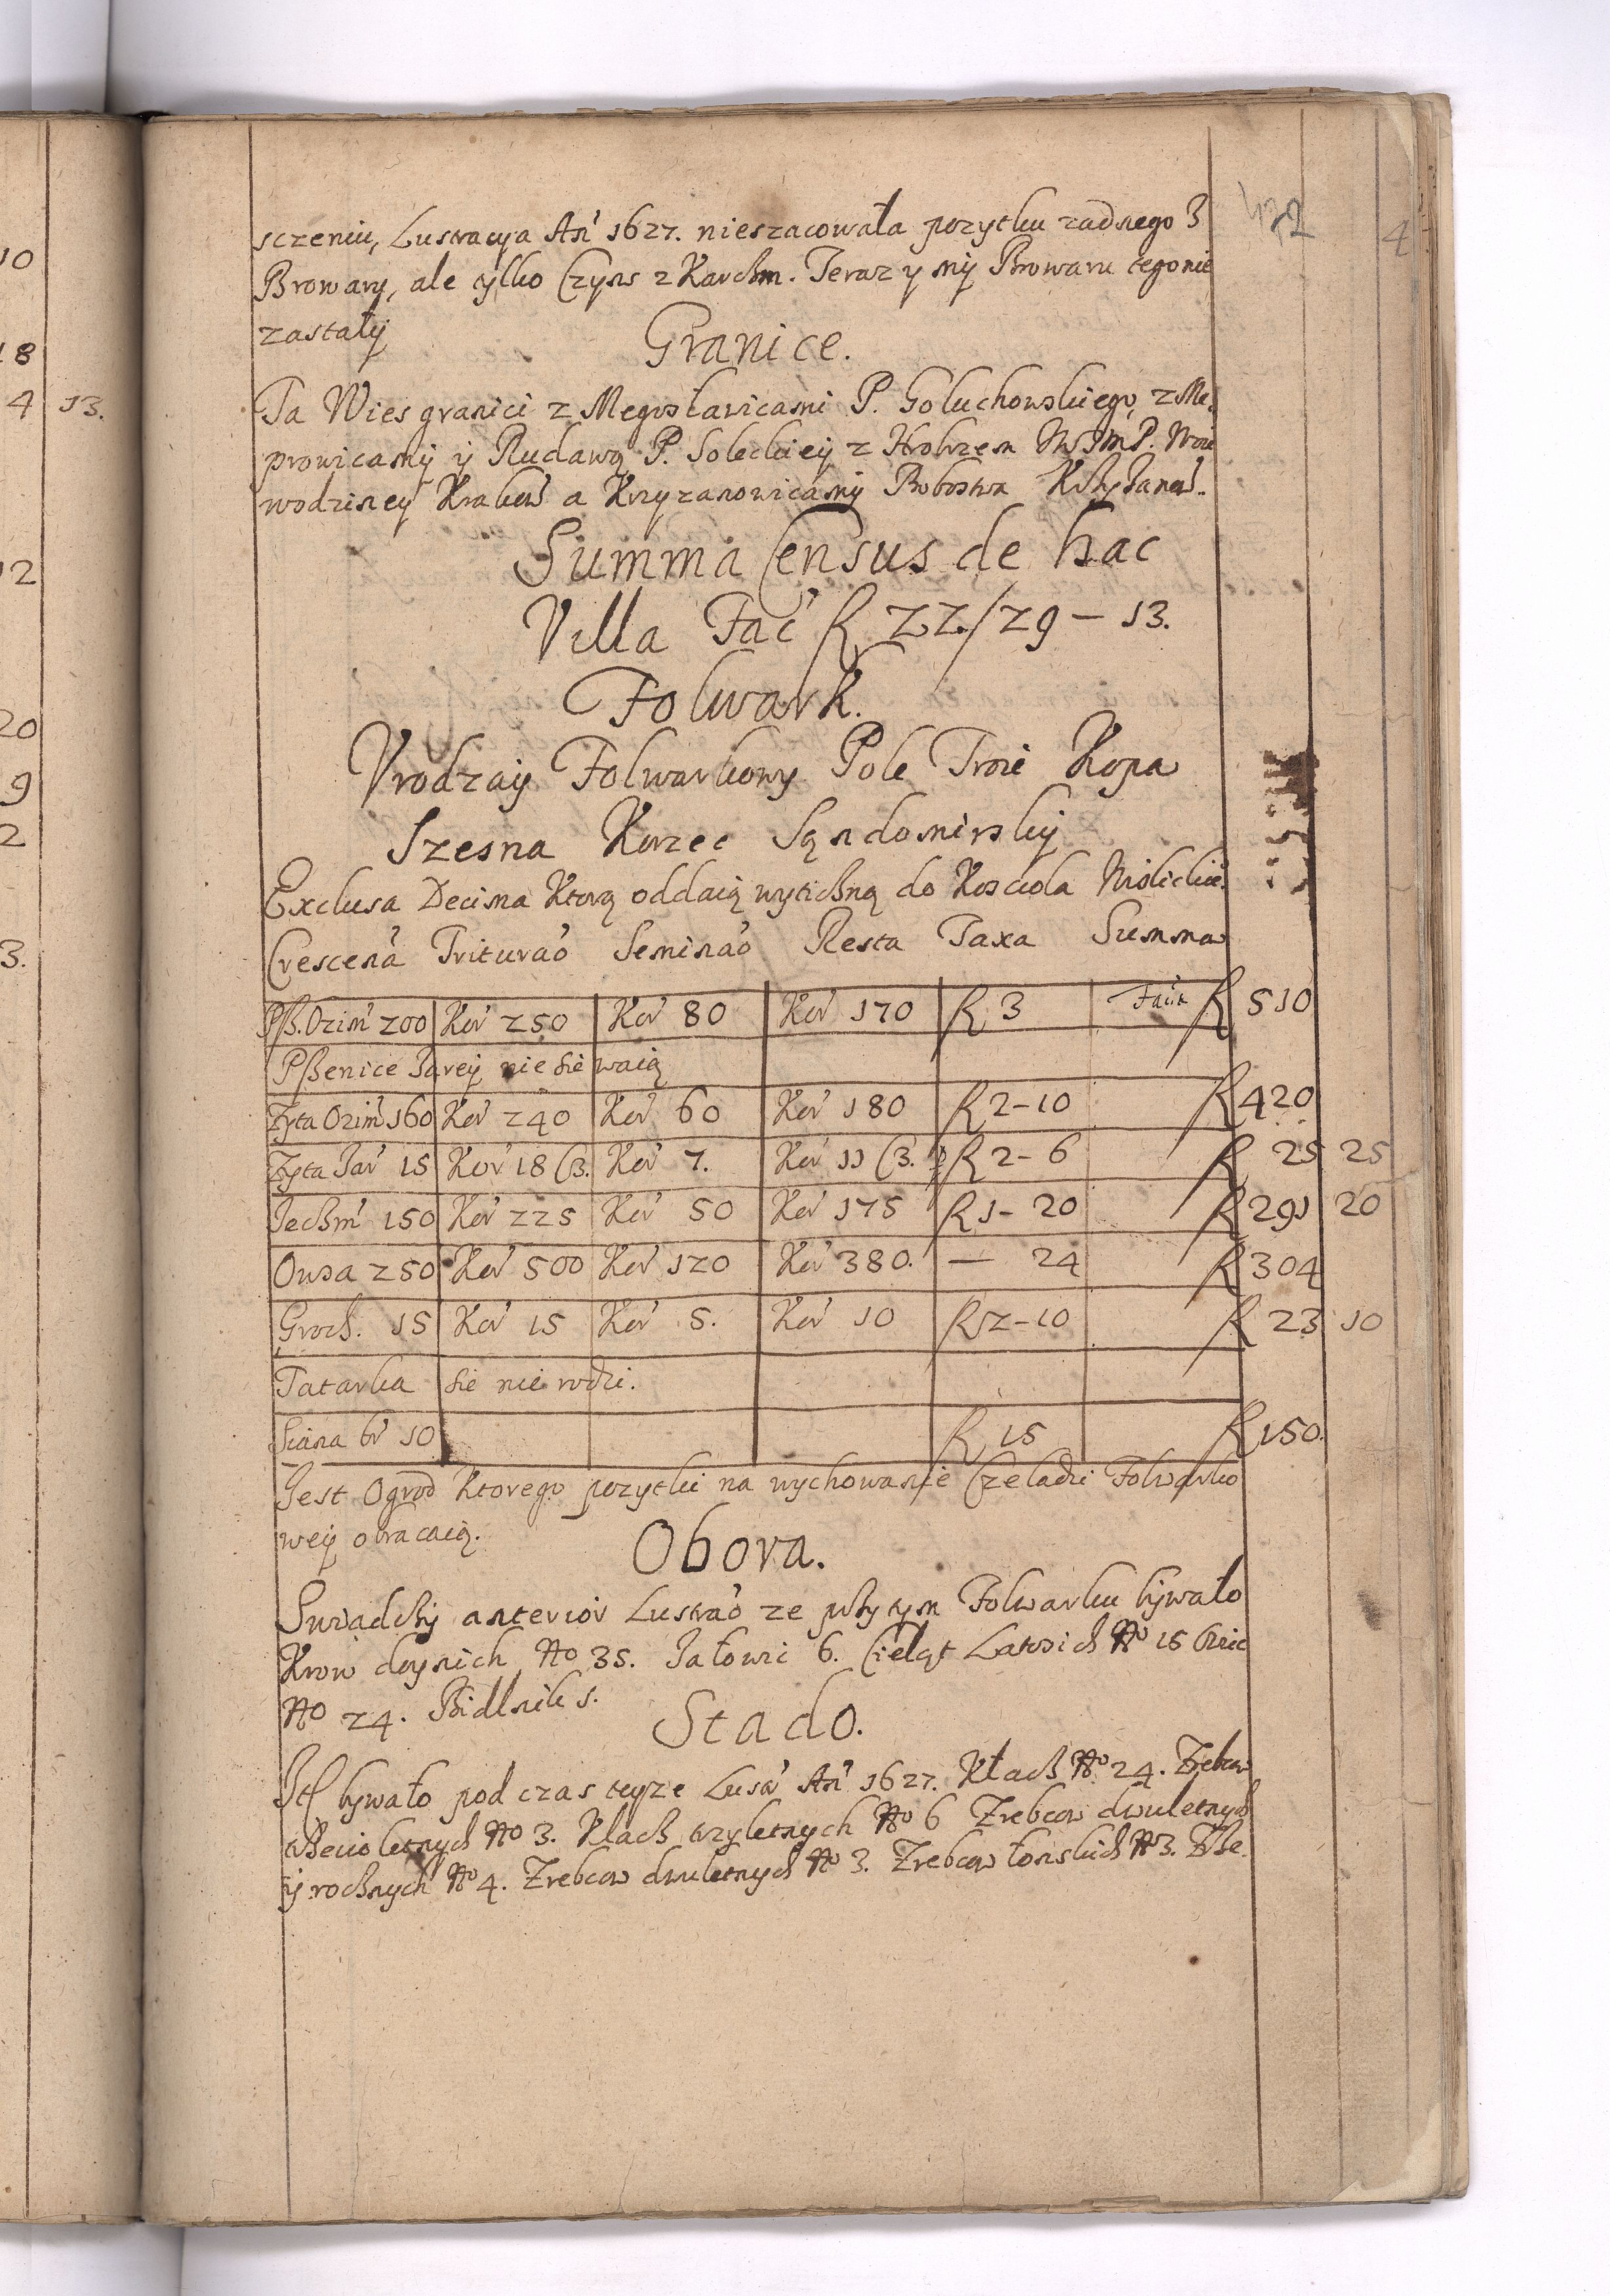 10
18
4 13.
12
20
9
2
3.
4
sczeniu, Lustracya An 1627. nieszacowała pozytku zadnego z
Browary, ale tylko Czyns z Karchm. Teraz y my Browaru tego nie
zastały
Granice.
Ta Wies granici z Megosławicami P. Goluchowskiego, z Me,
prowicamy y Rudawą P. Soleckiey z Hrobrzem P. Woie
wodziney Krakow a Krzyzanowicamy Probostwa
Summa Census de hac
Villa Fac fl 22/29 – 13.
Folwark.
Vrodzay Folwarkowy Pole Troie Kopa
Szesna Korzec Sęndomirsky
Exclusa Decima Ktorą oddaią wytichną do Kosciola Wislickie.
Crescena Triturao Seminao Resta Taxa Summa
Psz. Ozim 200 Kor 250 Kor 80 Kor 170 fl 3 Facit fl 510
Pszenice Jarey nie sie waią
Zyta Ozim 160 Kor 240 Kor 60 Kor 180 fl 2–10 fl 420
Zyta Jar 15 Kor 18 C3. Kor 7. Kor 11 C3. fl 2–6 fl 25 25
Jechm 150 Kor 225 Kor 50 Kor 175 fl 1–20 fl 291 20
Owsa 250 Kor 500 Kor 120 Kor 380. — 24 fl 304
Groch. 15 Kor 15 Kor 5. Kor 10 fl 2–10 fl 23 10
Tatarka sie nie rodzi.
Siana br 10 fl 15 fl 150.
Jest Ogrod Ktorego pozytki na wychowanie Czeladzi Folwarko
wey obracaią.
Obora.
Swiadchy anterior Lustrao ze przy tym Folwarku bywało
Krow doynich No 35. Jałowic 6. Cieląt Latosich No 15
No 24. Bidlnik 1.
Stado.
Itl bywało pod czas teyze Lusa An 1627. Kłach No 24. Zrebcow
trzecioletnych No 3. Klach trzyletnych No 6 Zrebcow dwuletnych
y rochnych No 4. Zrebcow dwuletnych No 3. Zrebcow łonskich No 3.